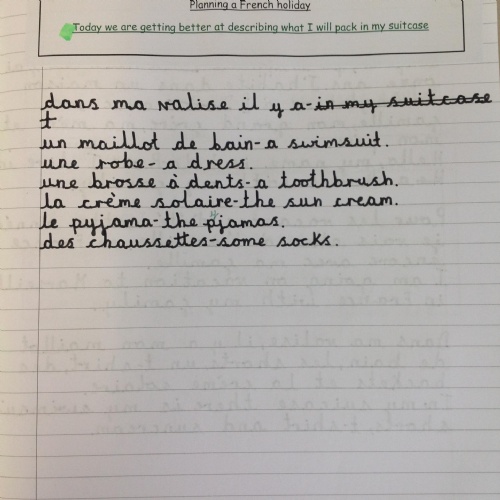 Planning a French holiday
Today we are getting better at describing what I will pack in my suitcase
dans ma valise il y a-in my suitcase
t
un maillot de bain-a swimsuit.
une robe- a dress.
une brosse à dents-a toothbrush.
la crème solaire-the sun cream.
le pyjama-the pyjamas.
des chaussettes-some socks.